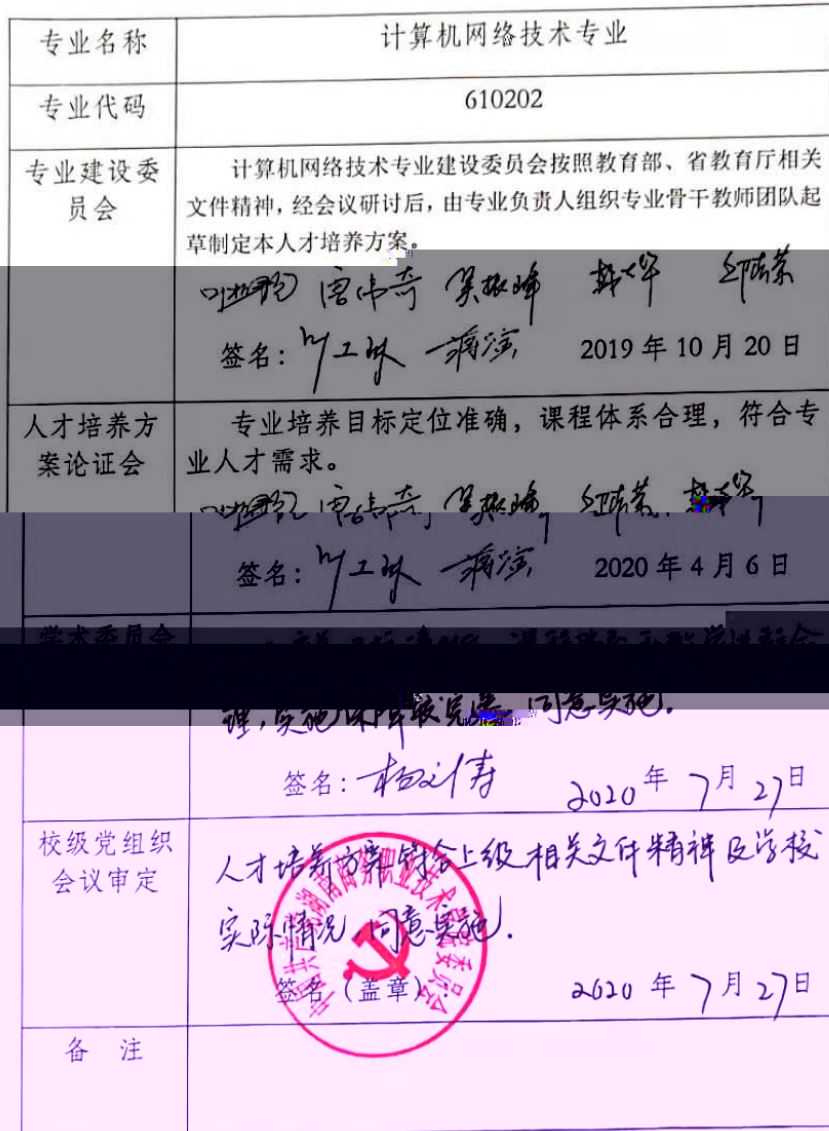 专业名称
计算机网络技术专业
专业代码
610202
专业建设委
员会
计算机网络技术专业建设委员会按照教育部、省教育厅相关
文件精神，经会议研讨后，由专业负责人组织专业骨干教师团队起
草制定本人才培养方案。
签名：
2019 年 10 月 20 日
人才培养方
案论证会
专业培养目标定位准确，课程体系合理，符合专
业人才需求。
签名：
2020 年 4 月 6 日
学术委员会
理，实施保障较完善，同意实施。
签名：
2020 年 7 月 27 日
校级党组织
会议审定
人才培养方案符合上级相关文件精神及学校
实际情况，同意实施.
签名（盖章）
2020 年 7 月 27 日
备 注